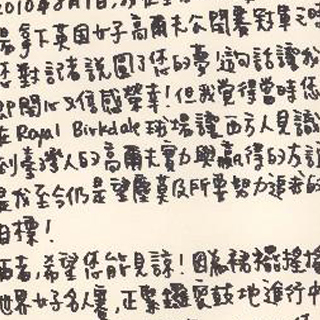 2010年8月1日,
您拿下英國女子高爾夫公開賽冠軍時
您對記者說圓了您的夢!這句話讓我
即開心又倍感榮幸!但我覺得當時您
在Royal Birkdale球場讓西方人見識
到臺灣人的高爾夫實力與贏得的方式
是我至今仍是望塵莫及所要努力追求的
目標!
兩者,希望您能見諒!因為裙襬搖搖
世界女子名人賽,正緊鑼密鼓地進行中